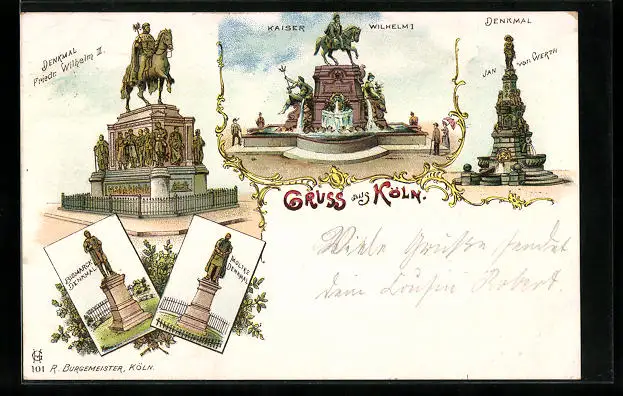 DENKMAL
Friedr. Wilhelm III.
KAISER WILHELM I
DENKMAL
JAN VON WERTH
GRUSS aus KÖLN.
Viele Grüße, sendet
dein Cousin Robert.
BISMARCK
DENKMAL
MOLTKE
DENKMAL
101 R. BURGEMEISTER, KÖLN.